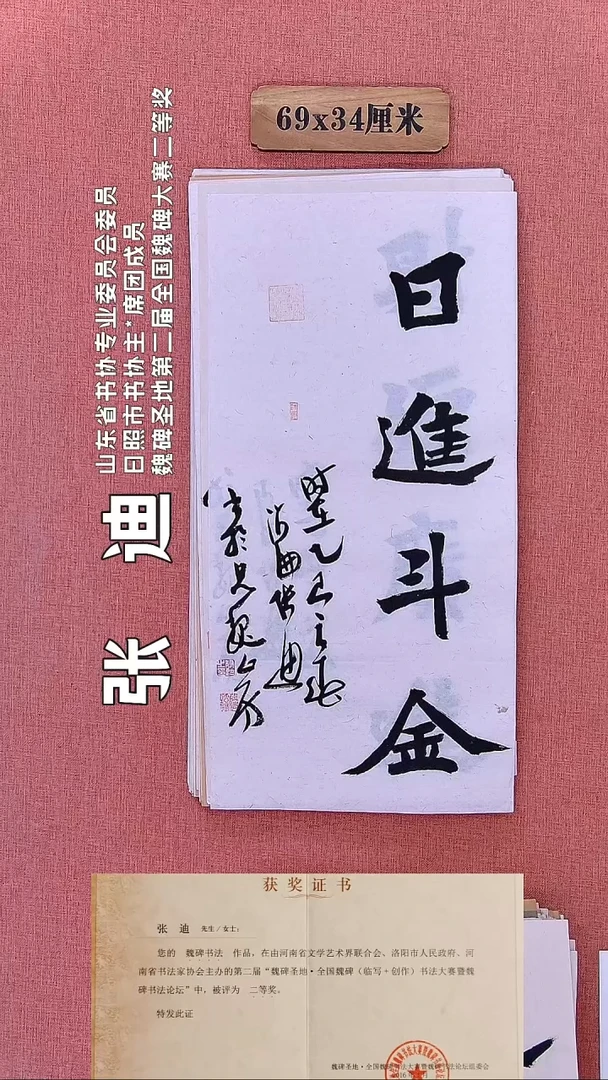 69x34厘米
日進斗金
山东省书协专业委员会委员
日照市书协主*席团成员
魏碑圣地第二届全国魏碑大赛二等奖
张 迪
获奖证书
张 迪 先生/女士:
您的 魏碑书法 作品,在由河南省文学艺术界联合会、洛阳市人民政府、河
南省书法家协会主办的第二届“魏碑圣地·全国魏碑(临写+创作)书法大赛暨魏
碑书法论坛”中,被评为 二等奖。
特发此证
魏碑圣地·全国魏碑书法大赛暨魏碑书法论坛组委会